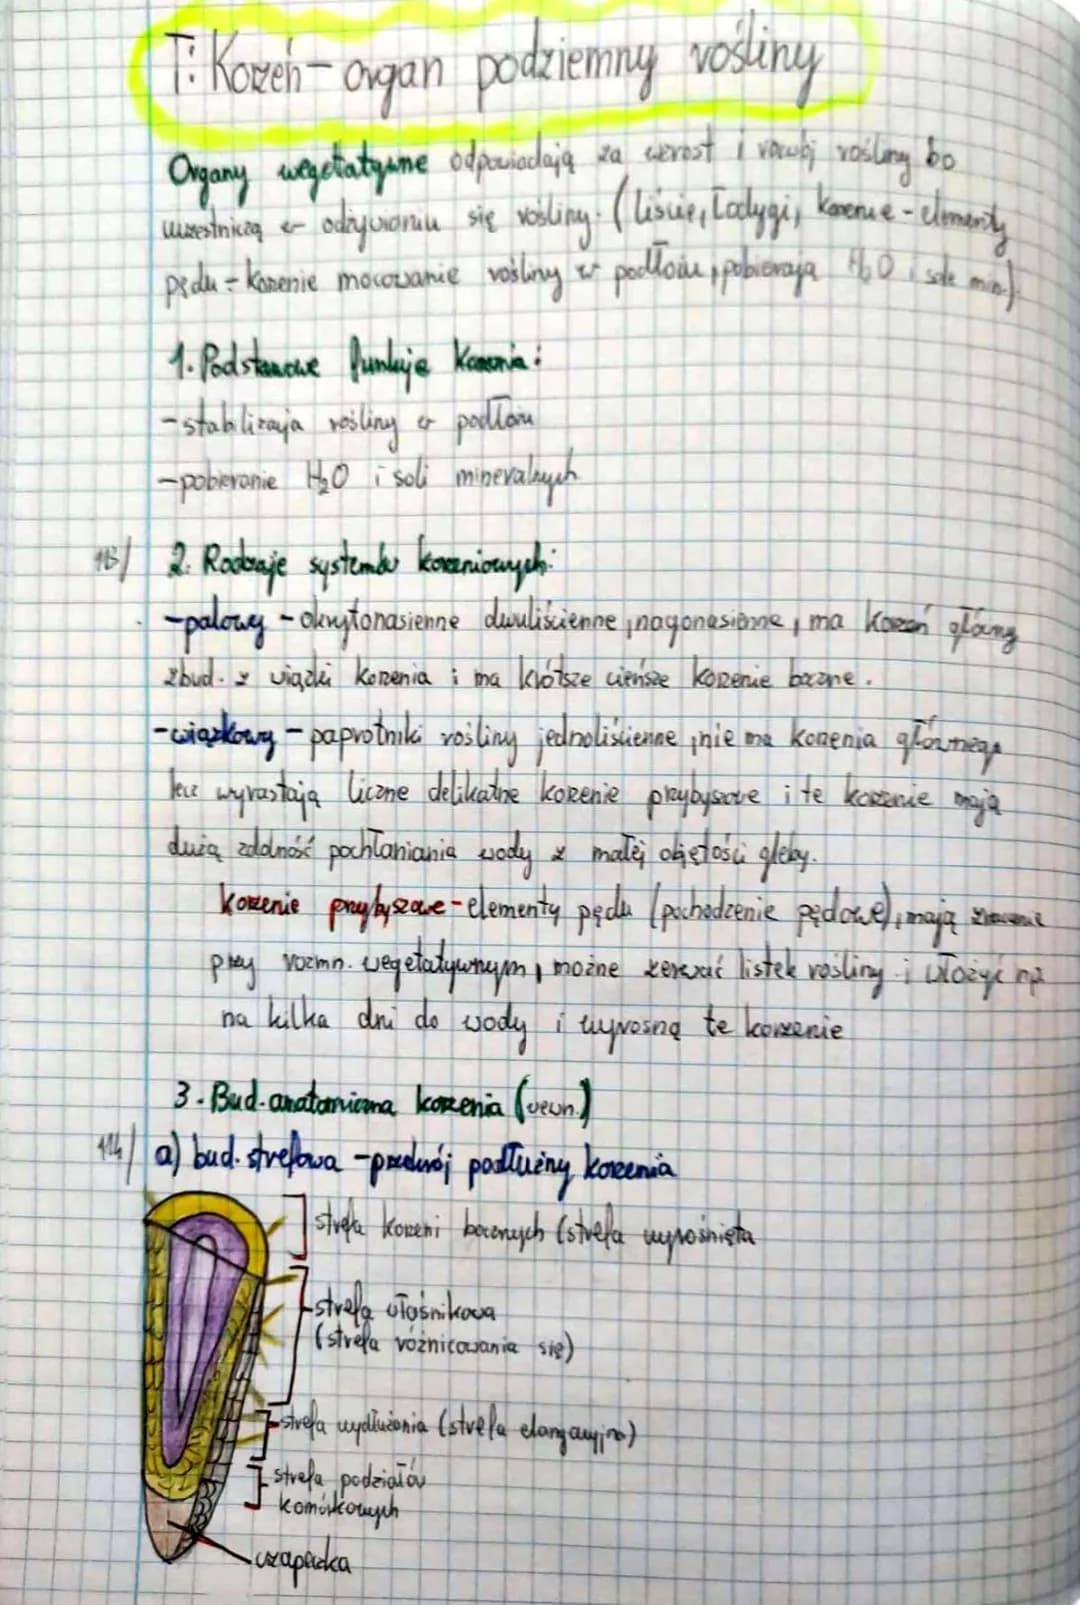 T: Korzeń - organ podziemny rośliny
Organy wegetatywne odpowiadają za wzrost i rozwój rośliny bo
uczestniczą w odżywianiu się rośliny. (liście, łodygi, korzenie - elementy
pędu - korzenie mocowanie rośliny w podłożu, pobierają H₂O i sole min.).
1. Podstawowe funkcje korzenia:
- stabilizacja rośliny w podłożu
- pobieranie H₂O i soli mineralnych
113/ 2. Rodzaje systemów korzeniowych:
- palowy - okrytonasienne dwuliścienne, nagonasienne, ma korzeń główny
zbud. z wiązki korzenia i ma krótsze cieńsze korzenie boczne.
- wiązkowy - paprotniki rośliny jednoliścienne, nie ma korzenia głównego
lecz wyrastają liczne delikatne korzenie przybyszowe i te korzenie mają
dużą zdolność pochłaniania wody z małej objętości gleby.
korzenie przybyszowe - elementy pędu (pochodzenie pędowe), mają znaczenie
przy rozmn. wegetatywnym, można zerwać listek rośliny i włożyć np.
na kilka dni do wody i wyrosną te korzenie
3. Bud. anatomiczna korzenia (wewn.)
114/ a) bud. strefowa - przekrój podłużny korzenia
strefa korzeni bocznych (strefa wyrośnięta
strefa włośnikowa
(strefa różnicowania się)
strefa wydłużania (strefa elongacyjna)
strefa podziałów
komórkowych
czapeczka